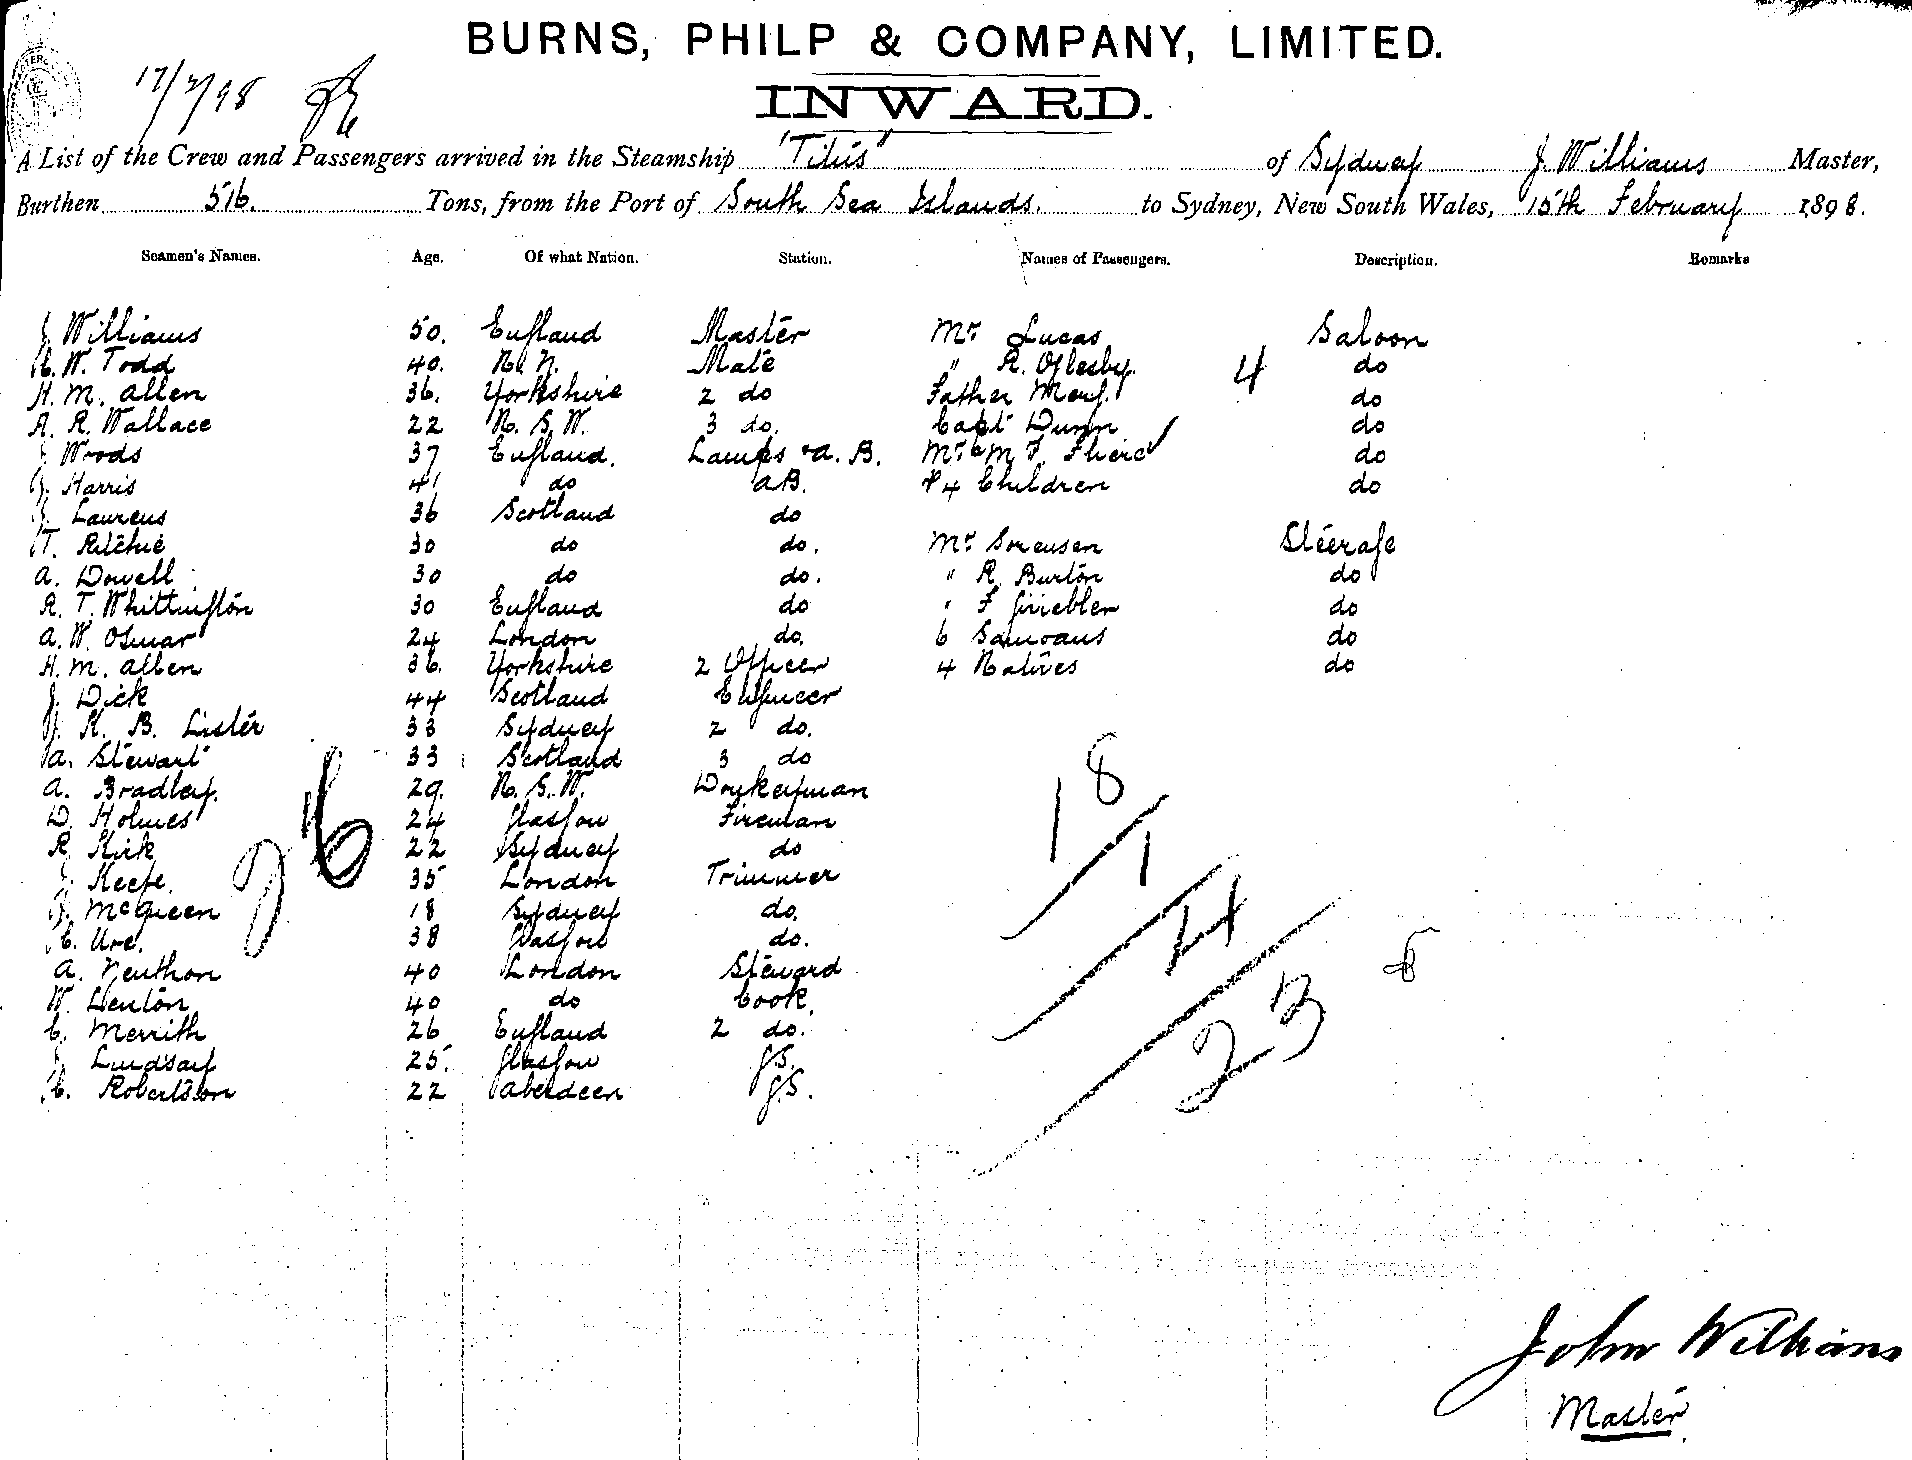 BURNS, PHILP & COMPANY, LIMITED.
17/2/98
INWARD.
A List of the Crew and Passengers arrived in the Steamship "Titus" of Sydney J. Williams Master,
Burthen 516. Tons, from the Port of South Sea Islands. to Sydney, New South Wales, 15th February 1898.
Seamen's Names. Age. Of what Nation. Station. Names of Passengers. Description. Remarks
J. Williams 50. England Master Mr Lucas Saloon
W. Todd 40. Mate " R. Oglesby. 4 do
H. M. Allen 36. Yorkshire 2 do Father do
A. R. Wallace 22 N. S. W. 3 do. Capt Dunn do
J. Woods 37 England. Lamps & A. B. Mr & M do
J. Harris 41 do AB. & 4 Children do
J. Laurens 36 Scotland do
T. Ritchie 30 do do. Mr Sorensen Steerage
A. Dowell 30 do do. " R. Burton do
R. T. Whittington 30 England do " F do
A. W. Osmar 24 London do. 6 Samoans do
H. M. Allen 36. Yorkshire 2 Officer 4 Natives do
J. Dick 44 Scotland Engineer
J. R. B. Lister 33 Sydney 2 do.
A. Stewart 33 Scotland 3 do
A. Bradley. 29. N. S. W. Donkeyman
D. Holmes 24 Glasgow Fireman
R. Kirk 22 Sydney do
J. Keefe. 35 London Trimmer
J. McQueen 18 Sydney do.
C. Ure. 38 Glasgow do.
A. Neuthon 40 London Steward
W. Lenton 40 do Cook.
C. Merrith 26 England 2 do.
J. Lindsay 25. Glasgow G.S.
C. Robertson 22 Aberdeen G.S.
26
18
1
4
23
John Williams
Master.